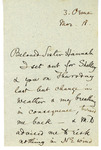 3. Orme
Mar 18
Beloved Sister Hannah
I set out for Shelly
& you on Thursday
last but change in
weather & my
in consequence
me back — a M.D
advised me to risk
nothing in N.E. wind